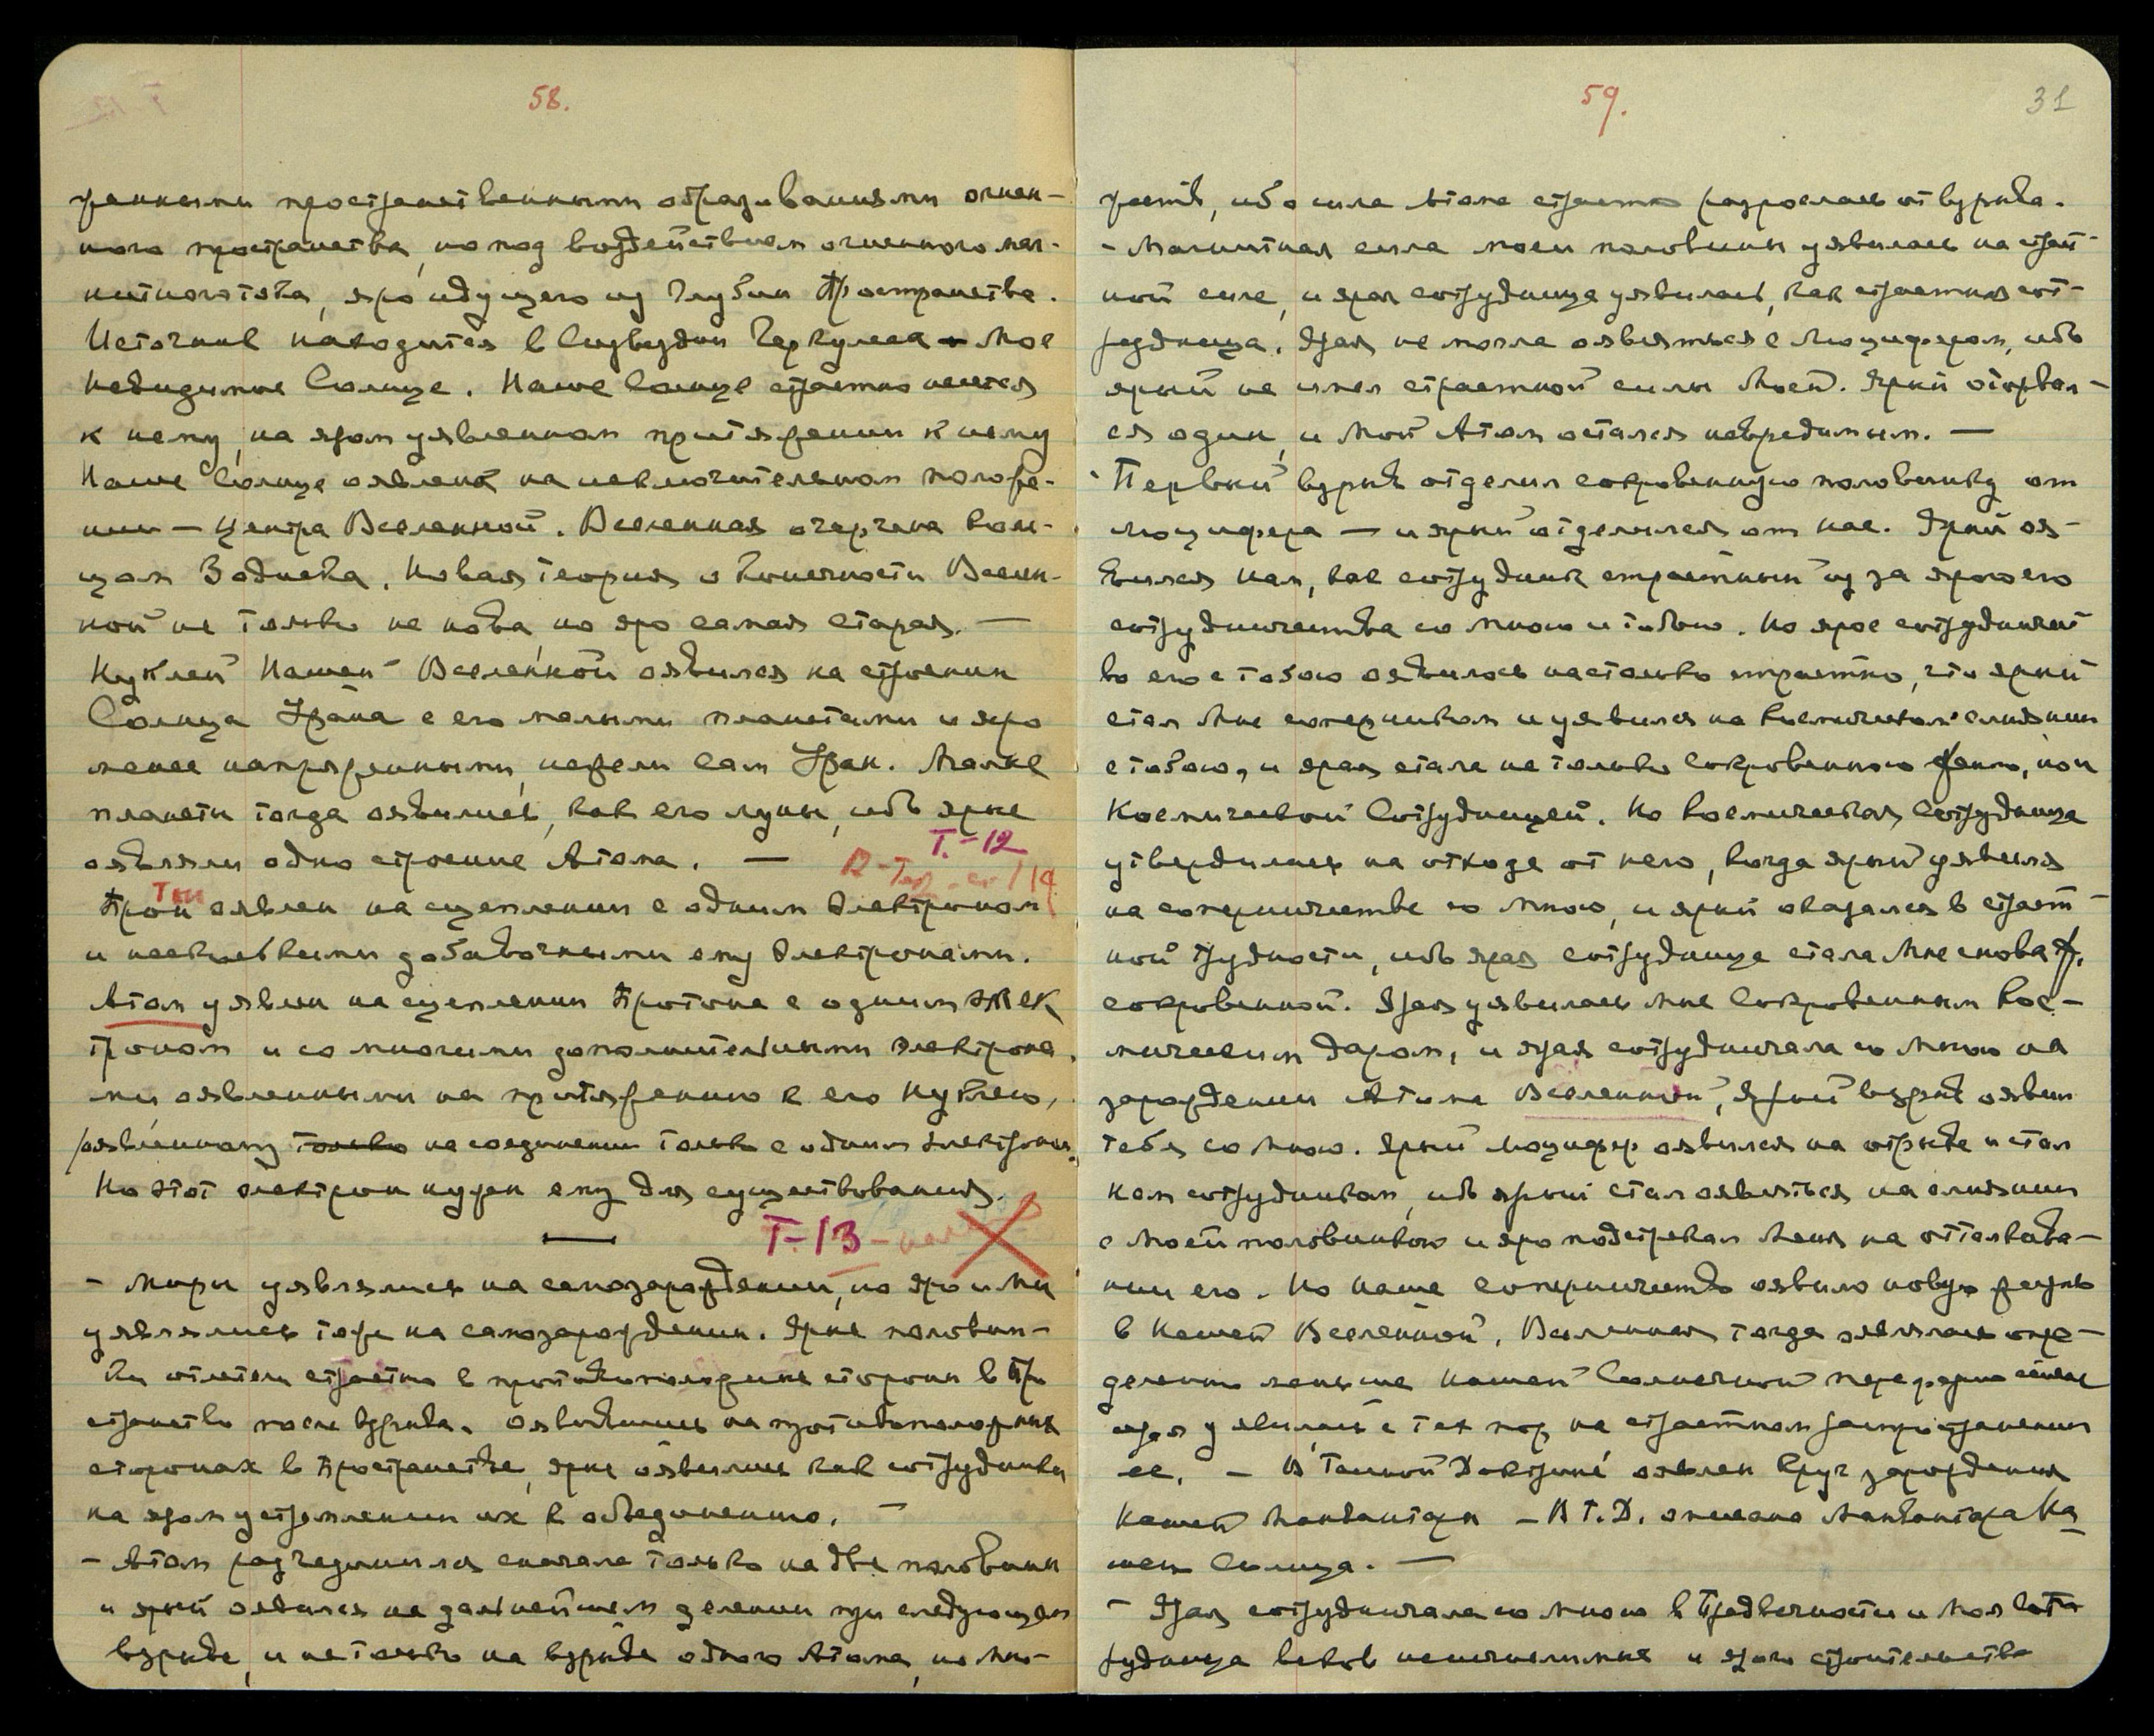 58.
женными пространственными образованиями огнен-
ного пространства, но под воздействием огненного маг-
нитного тока, яро идущего из глубин Пространства.
Источник находится в Созвездии Геркулеса – Мое
Невидимое Солнце. Наше Солнце страстно несется
к нему, на яром уявленном притяжении к нему
Наше Солнце явлено на исключительном положе-
нии — центра Вселенной. Вселенная очерчена коль-
цом Зодиака. Новая теория о конечности Вселен-
ной не только не нова, но яро самая старая. —
Нуклей Нашей Вселенной оявился на строении
Солнца Урана с его малыми планетами и яро
менее напряженными, нежели сам Уран. Малые
планеты тогда оявились, как его луны, ибо ярые
оявляли одно строение Атома. —
Т.-12
Протон оявлен на сцеплении с одним Электроном
и несколькими добавочными ему Электронами.
Атом уявлен на сцеплении Протона с одним Элек
троном и со многими дополнительными электрона
ми оявленными на притяжении к его Нуклею,
оявленному только на соединении только с одним электроном.
Но этот электрон нужен ему для существования.
Т-13
– Миры уявлялись на самозарождении, но яро и Мы
уявлялись тоже на самозарождении. Ярые половин-
ки отлетели страстно в противоположные стороны в Про
странстве после взрыва. Оявившись на противоположных
сторонах в Пространстве, ярые оявились как сотрудники
на яром устремлении их к объединению. —
– Атом разъединился сначала только на две половинки
и ярый оявился на дальнейшем делении при следующем
взрыве, и не только на взрыве одного Атома, но Мно-
59.
31
жеств, ибо сила Атома страстно разрослась от взрыва.
– Магнитная сила моей половинки уявилась на страст
ной силе, и ярая сотрудница уявилась, как страстная сот-
рудница. Ярая не могла оявиться с Люцифером, ибо
ярый не имел страстной силы Моей. Ярый оторвал-
ся один, и Мой Атом остался невредимым. —
Первый взрыв отделил сокровенную половинку от
Люцифера — и ярый отделился от нас. Ярый оя-
вился нам, как сотрудник страстный из за ярого его
сотрудничества со Мною и тобою. Но ярое сотрудничест
во его с тобою оявилось настолько страстно, что ярый
стал Мне соперником и уявился на космическом слиянии
с тобою, и ярая стала не только сокровенною женою, но и
Космической Сотрудницей. Но космическая Сотрудница
утвердилась на отходе от него, когда ярый уявился
на соперничестве со Мною, и ярый оказался в страст
ной трудности, ибо ярая сотрудница стала Мне снова
сокровенной. Ярая уявилась Мне Сокровенным Кос-
мическим Даром, и ярая сотрудничала со Мною на
зарождении Атома Вселенной, Ярый взрыв оявил
тебя со Мною. Ярый Люцифер оявился на отрыве и стал
нам сотрудником, ибо ярый стал оявляться на слиянии
с Моей половинкою и яро подстрекал Меня на отталкива-
нии его. Но наше соперничество оявило новую жизнь
в Нашей Вселенной. Вселенная тогда оявлялась опре-
деленно меньше Нашей Солнечной периферии сейчас
ярая уявилась с тех пор на страстном распространении
ее. – В Тайной Доктрине оявлен круг зарождения
Нашей Манвантары – В Т.Д. описана Манвантара На
шего Солнца. —
– Ярая сотрудничала со Мною в Предвечности и Моя Сот
рудница веков неисчислимых и ярого строительства